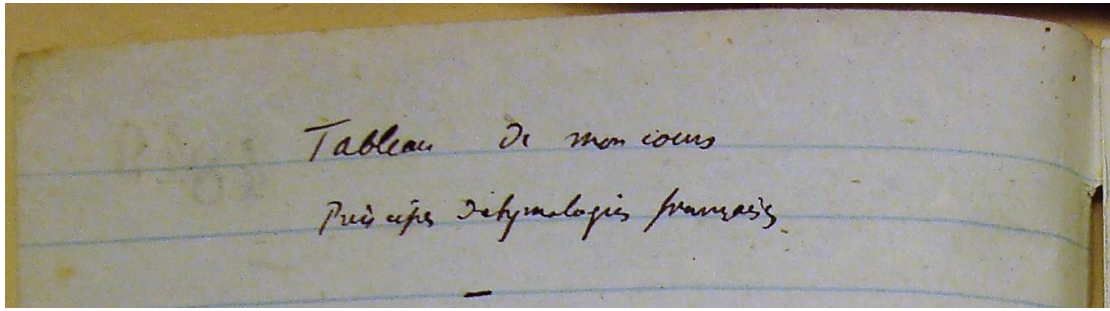 Tableau de mon cours
Principes d'étymologies françaises